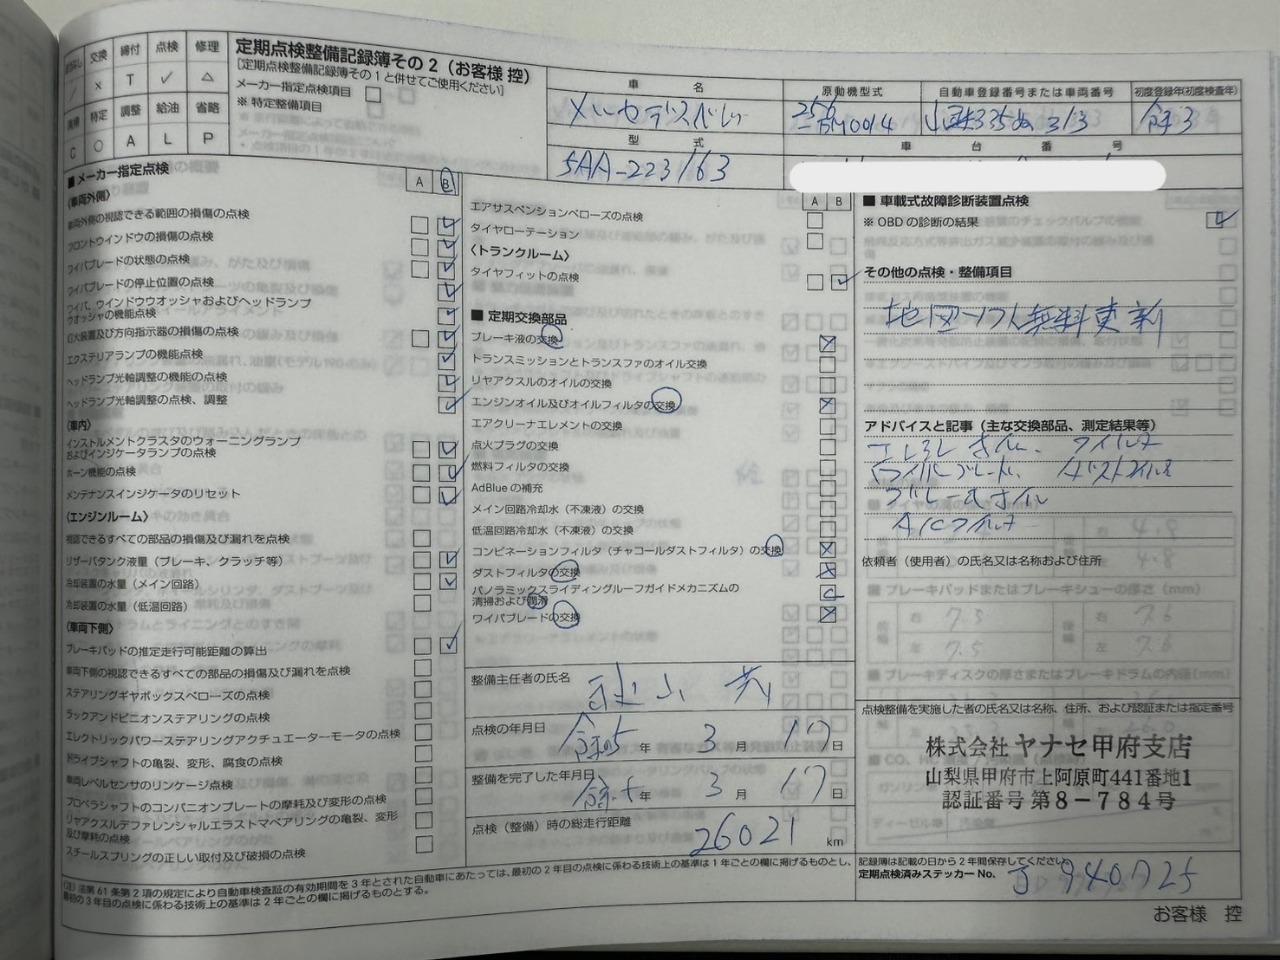 交換 締付 点検 修理
× T ✓ △
特定 調整 給油 省略
C ○ A L P
定期点検整備記録簿その2（お客様 控）
［定期点検整備記録簿その1と併せてご使用ください］
メーカー指定点検項目 □
※ 特定整備項目 □
車 名
メルセデスベンツ
原動機型式
256
自動車登録番号または車両番号
313
初度登録年(初度検査年)
令和3
型 式
5AA-223163
車 台 番 号
■ メーカー指定点検
A B
〈車両外側〉
車両外側の視認できる範囲の損傷の点検
フロントウインドウの損傷の点検
ワイパブレードの状態の点検
ワイパブレードの停止位置の点検
ワイパ、ウインドウウオッシャおよびヘッドランプ
ウオッシャの機能点検
灯火装置及び方向指示器の損傷の点検
エクステリアランプの機能点検
ヘッドランプ光軸調整の機能の点検
ヘッドランプ光軸調整の点検、調整
〈車内〉
インストルメントクラスタのウォーニングランプ
およびインジケータランプの点検
ホーン機能の点検
メンテナンスインジケータのリセット
〈エンジンルーム〉
視認できるすべての部品の損傷及び漏れを点検
リザーバタンク液量（ブレーキ、クラッチ等）
冷却装置の水量（メイン回路）
冷却装置の水量（低温回路）
〈車両下側〉
ブレーキパッドの推定走行可能距離の算出
車両下側の視認できるすべての部品の損傷及び漏れを点検
ステアリングギヤボックスベローズの点検
ラックアンドピニオンステアリングの点検
エレクトリックパワーステアリングアクチュエーターモータの点検
ドライブシャフトの亀裂、変形、腐食の点検
車両レベルセンサのリンケージ点検
プロペラシャフトのコンパニオンプレートの摩耗及び変形の点検
リヤアクスルデファレンシャルエラストマベアリングの亀裂、変形
及び摩耗の点検
スチールスプリングの正しい取付及び破損の点検
A B
エアサスペンションベローズの点検
タイヤローテーション
〈トランクルーム〉
タイヤフィットの点検
■ 定期交換部品
ブレーキ液の交換
トランスミッションとトランスファのオイル交換
リヤアクスルのオイルの交換
エンジンオイル及びオイルフィルタの交換
エアクリーナエレメントの交換
点火プラグの交換
燃料フィルタの交換
AdBlue の補充
メイン回路冷却水（不凍液）の交換
低温回路冷却水（不凍液）の交換
コンビネーションフィルタ（チャコールダストフィルタ）の交換
ダストフィルタの交換
パノラミックスライディングルーフガイドメカニズムの
清掃および潤滑
ワイパブレードの交換
整備主任者の氏名
点検の年月日
令和5 年 3 月 17 日
整備を完了した年月日
令和5 年 3 月 17 日
点検（整備）時の総走行距離
26021 km
■ 車載式故障診断装置点検
※ OBD の診断の結果
その他の点検・整備項目
地図ソフト無料更新
アドバイスと記事（主な交換部品、測定結果等）
エレメント
ワイパーブレード、ダストフィルタ
ブレーキオイル
A/Cフィルタ
依頼者（使用者）の氏名又は名称および住所
点検整備を実施した者の氏名又は名称、住所、および認証または指定番号
株式会社 ヤナセ甲府支店
山梨県甲府市上阿原町441番地1
認証番号 第8－784号
記録簿は記載の日から2年間保存してください。
定期点検済みステッカー No.
（注）法第 61 条第 2 項の規定により自動車検査証の有効期間を 3 年とされた自動車にあたっては、最初の 2 年目の点検に係わる技術上の基準は 1 年ごとの欄に掲げるものとし、
最初の 3 年目の点検に係わる技術上の基準は 2 年ごとの欄に掲げるものとする。
お客様 控